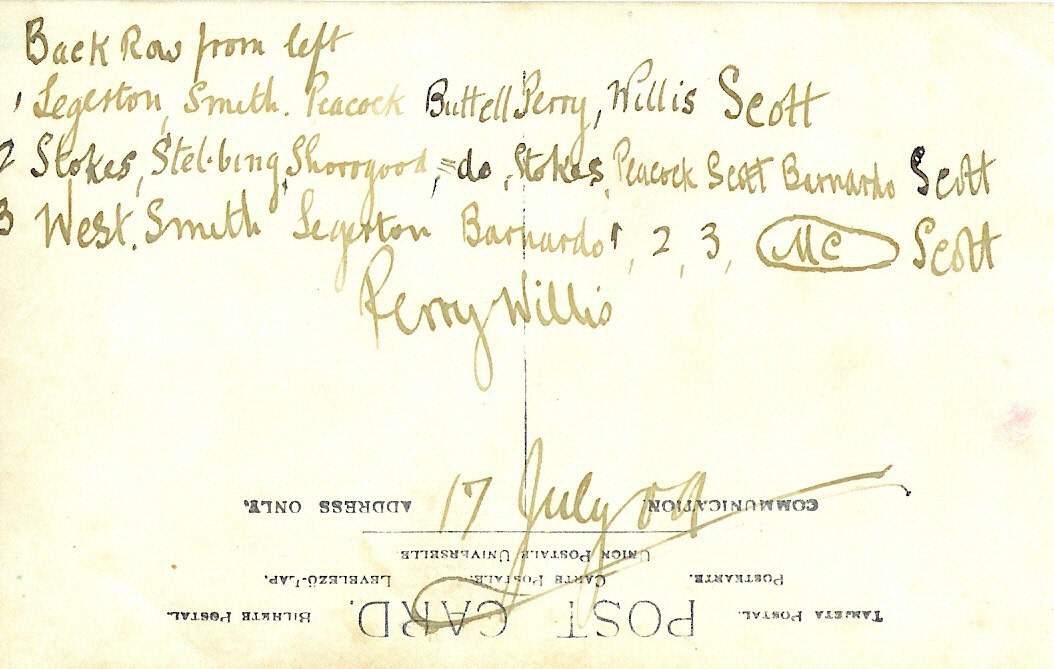 Back Row from left
1 Legerton, Smith. Peacock Buttell Perry, Willis Scott
2 Stokes, Stebbing, Shorogood, = do, Stokes, Peacock Scott Barnardo Scott
3 West. Smith Legerton Barnardo 1, 2, 3, Mc Scott
Perry Willis
17 July 09
COMMUNICATION. ADDRESS ONLY.
UNION POSTALE UNIVERSELLE.
POSTKARTE. CARTE POSTALE. LEVELEZŐ-LAP.
TARJETA POSTAL. POST CARD. BILHETE POSTAL.